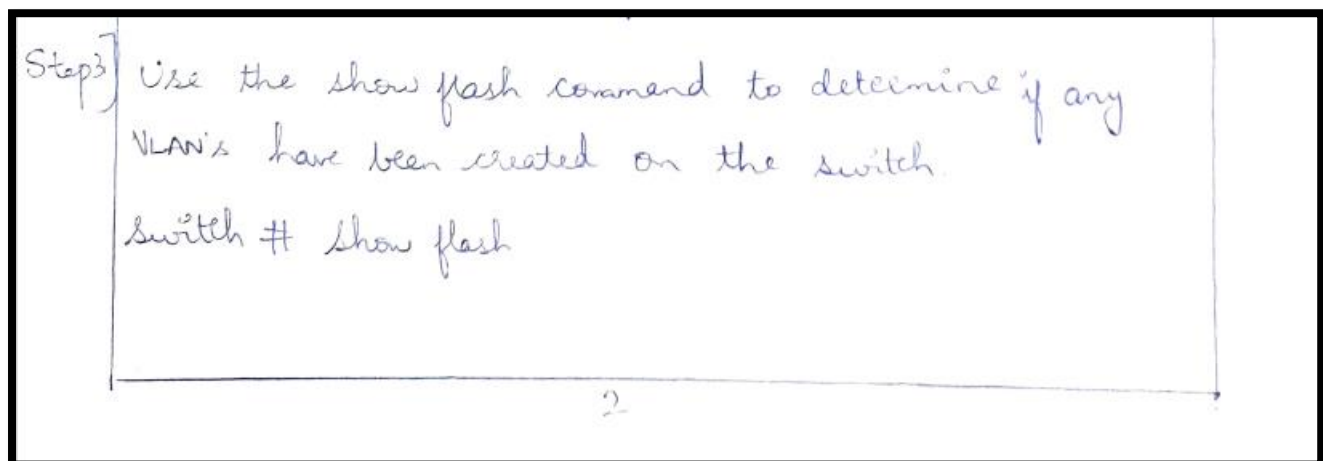 Step3] Use the show flash command to determine if any
VLAN's have been created on the switch.
Switch # show flash
2